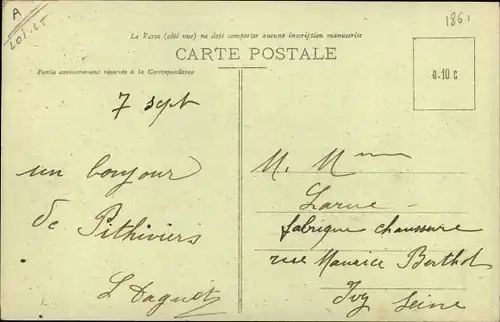 A
1861
Le Verso (côté vue) ne doit comporter aucune inscription manuscrite
CARTE POSTALE
Partie exclusivement réservée à la Correspondance
0.10 c
7 sept
un bonjour
de Pithiviers
L Daguet
M. Mme
Larue
fabrique chaussure
rue Maurice Berthol
Ivry Seine